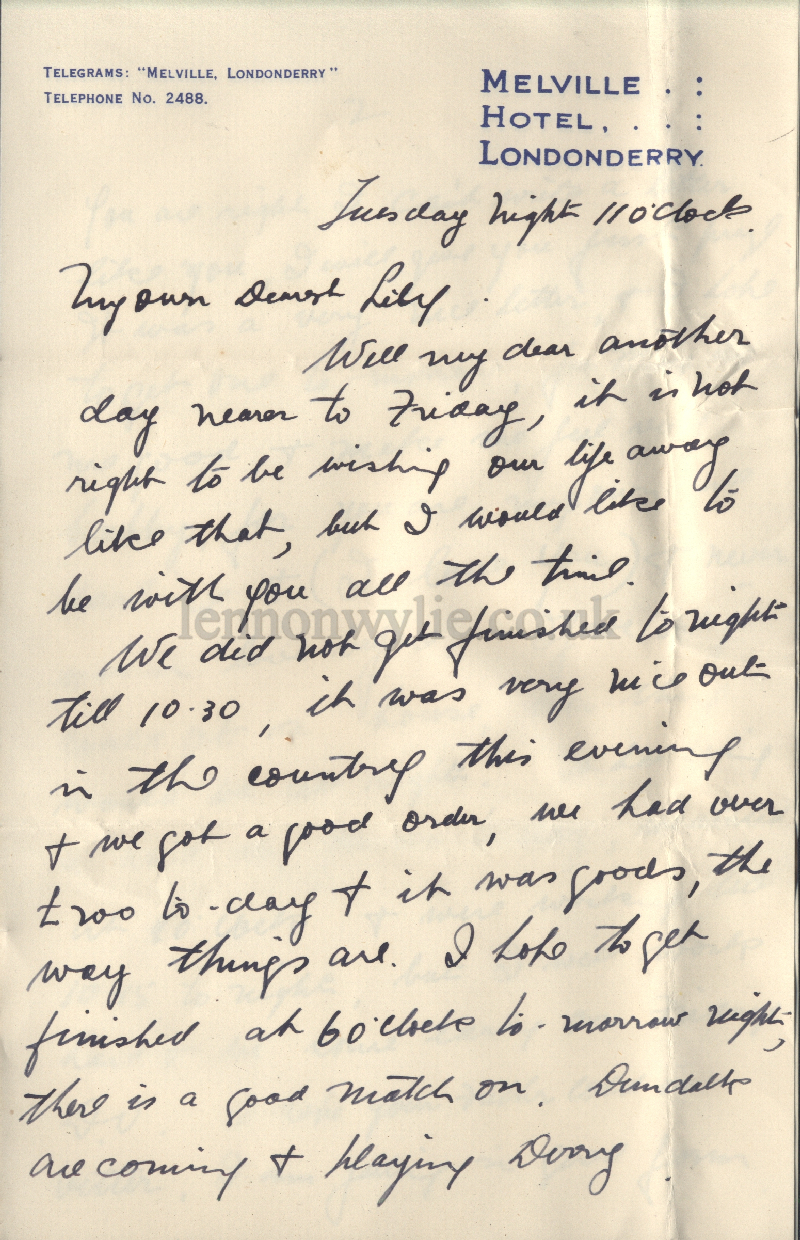 TELEGRAMS: "MELVILLE, LONDONDERRY"
TELEPHONE NO. 2488.
MELVILLE . :
HOTEL, . . :
LONDONDERRY.
Tuesday Night 11 o'clock.
My own Dearest Lily.
Well my dear another
day nearer to Friday, it is not
right to be wishing our life away
like that, but I would like to
be with you all the time.
lennonwylie.co.uk
We did not get finished to night
till 10.30, it was very nice out
in the country this evening
+ we got a good order, we had over
£200 to-day + it was good, the
way things are. I hope to get
finished at 6 o'clock to-morrow night,
there is a good match on. Dundalk
are coming + playing Derry